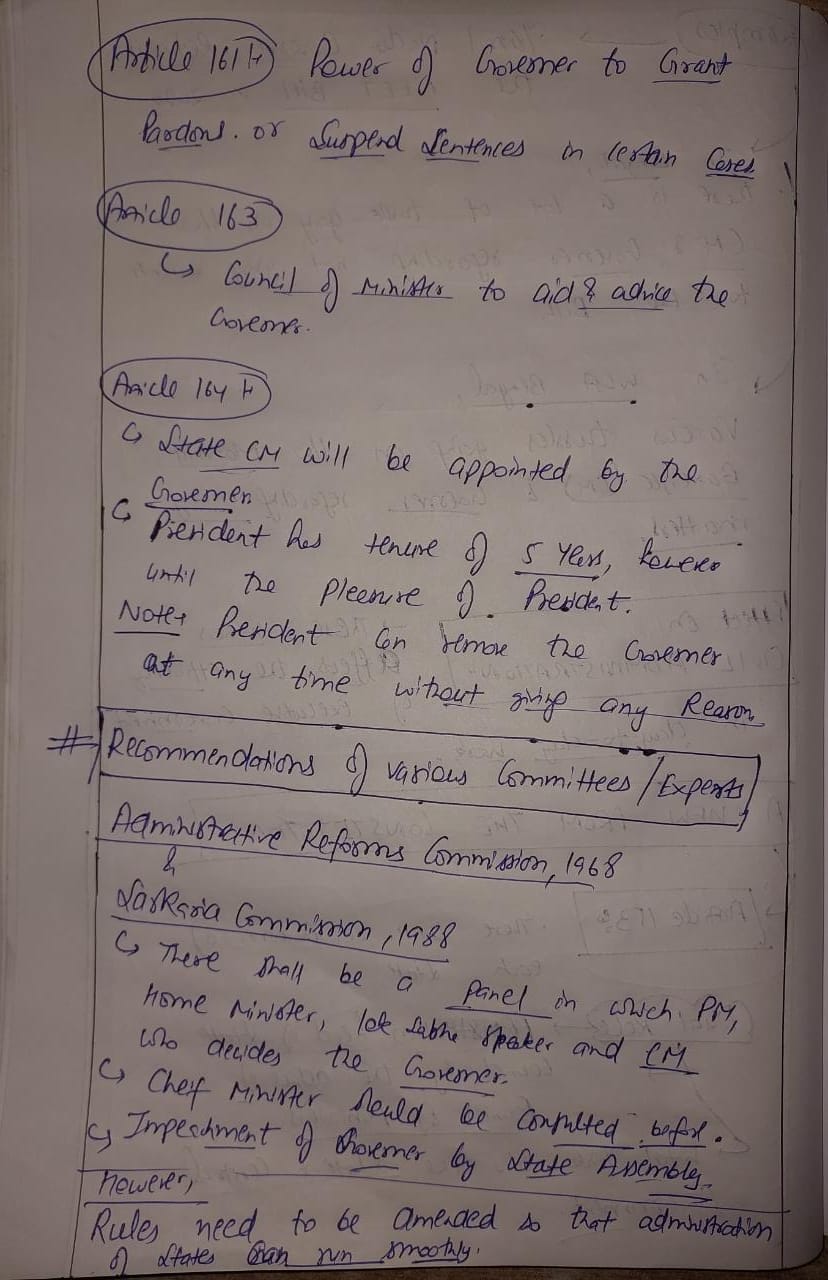 Article 161 :- Power of Governer to Grant
Pardons. or Suspend Sentences in certain Cases
Article 163
↳ Council of Minister to aid & advice the
Governer.
Article 164 :-
↳ State CM will be appointed by the
Governer.
↳ President has tenure of 5 Years, however
until the pleasure of President.
Note:- President can remove the Governer
at any time without giving any Reason
# Recommendations of various Committees / Experts
Administrative Reforms Commission, 1968
&
Sarkaria Commission, 1988
↳ There shall be a panel in which PM,
Home Minister, lok sabha speaker and CM
who decides the Governer.
↳ Cheif Minister should be consulted before.
↳ Impeachment of Governer by State Assembly.
However,
Rules need to be amended so that administration
of States can run smoothly.